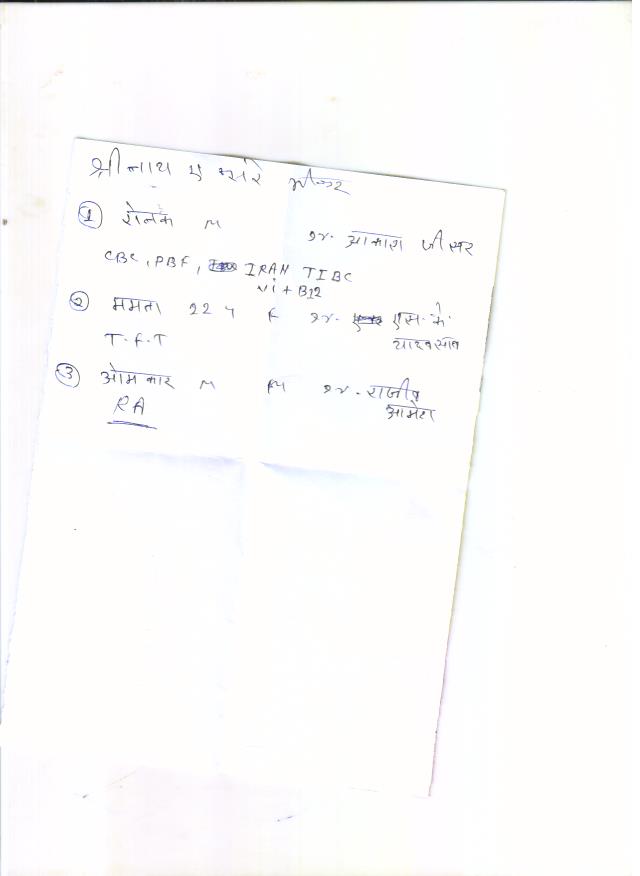 श्रीनाथ
① रोनक M
डॉ. आकाश जी सर
CBC, PBF, IRAN TIBC
Vit B12
② ममता 22 Y F डॉ. एस. के.
T.F.T
③ ओमकार M M डॉ. राजीव
RA आमेटा